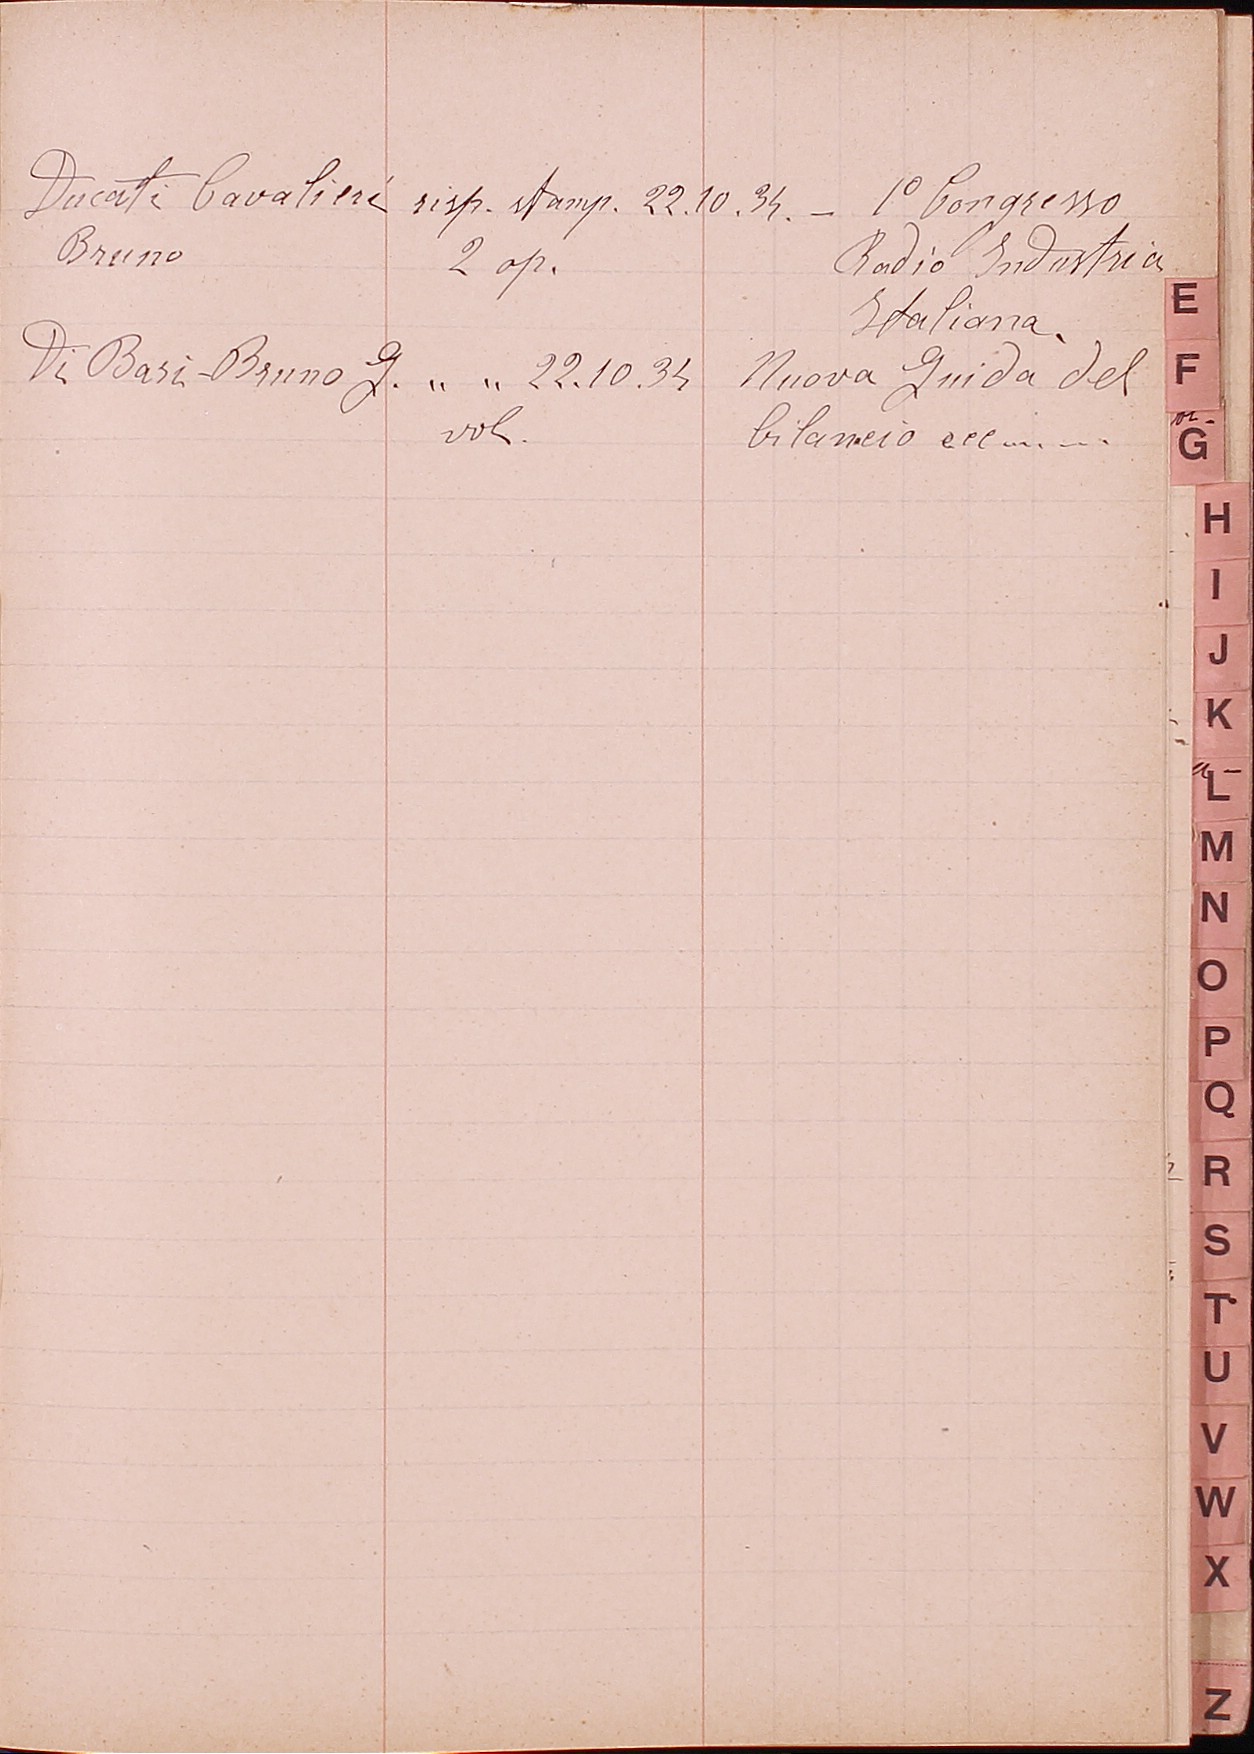 Ducati Cavalieri risp. stamp. 22.10.34. - 1º Congresso
Bruno 2 op. Radio Industria
Italiana.
Di Bari-Bruno G. " " 22.10.34 Nuova Guida del
vol. bilancio ecc......
E
F
G
H
I
J
K
L
M
N
O
P
Q
R
S
T
U
V
W
X
Z